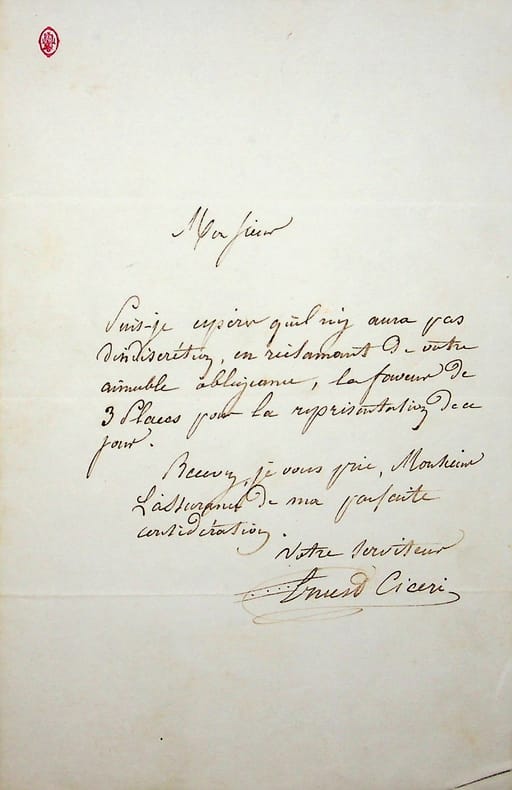 Monsieur
Puis-je espérer qu'il n'y aura pas
d'indiscrétion, en réclamant de votre
aimable obligeance, la faveur de
3 Places pour la représentation de ce
jour.
Recevez, je vous prie, Monsieur
L'assurance de ma parfaite
considération.
Votre serviteur
Ernest Ciceri